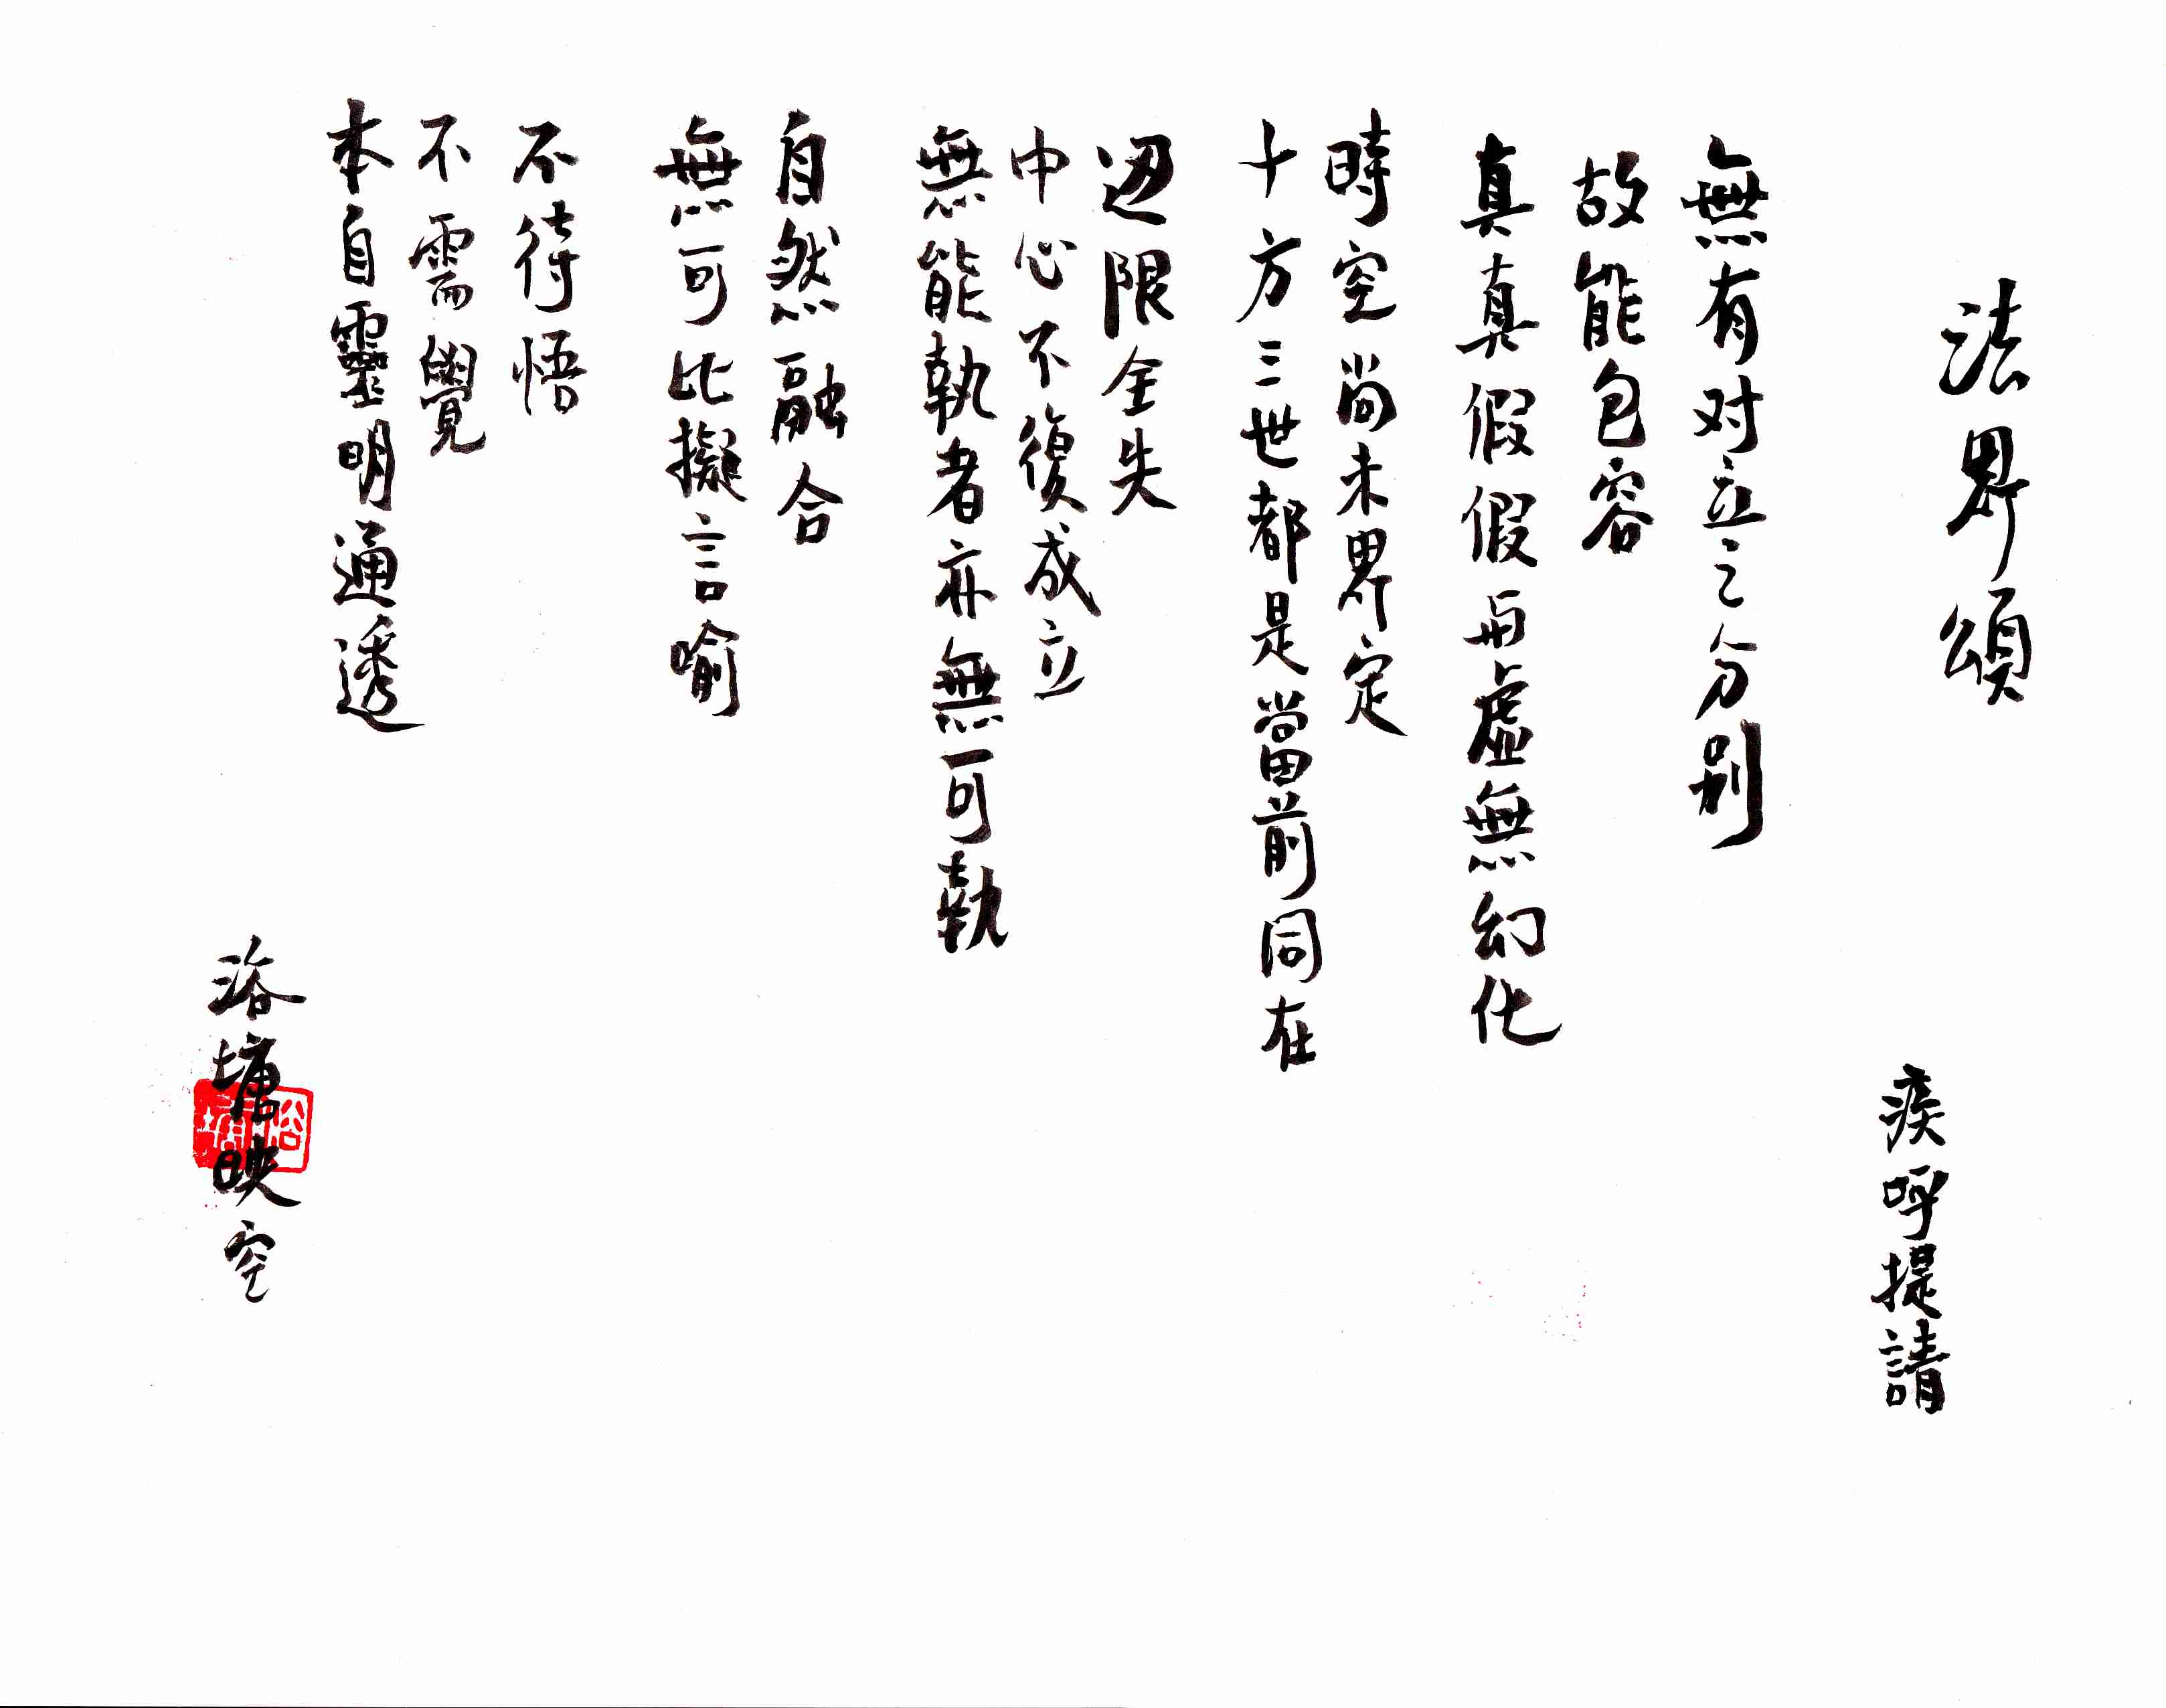 法界頌
疾呼提請
無有对立之分別
故能包容
真真假假而虛無幻化
時空尚未界定
十方三世都是當前同在
边限全失
中心不復成立
無能執者亦無可執
自然融合
無可比擬言喻
不待悟
不需覺
本自靈明通透
洛墉映空